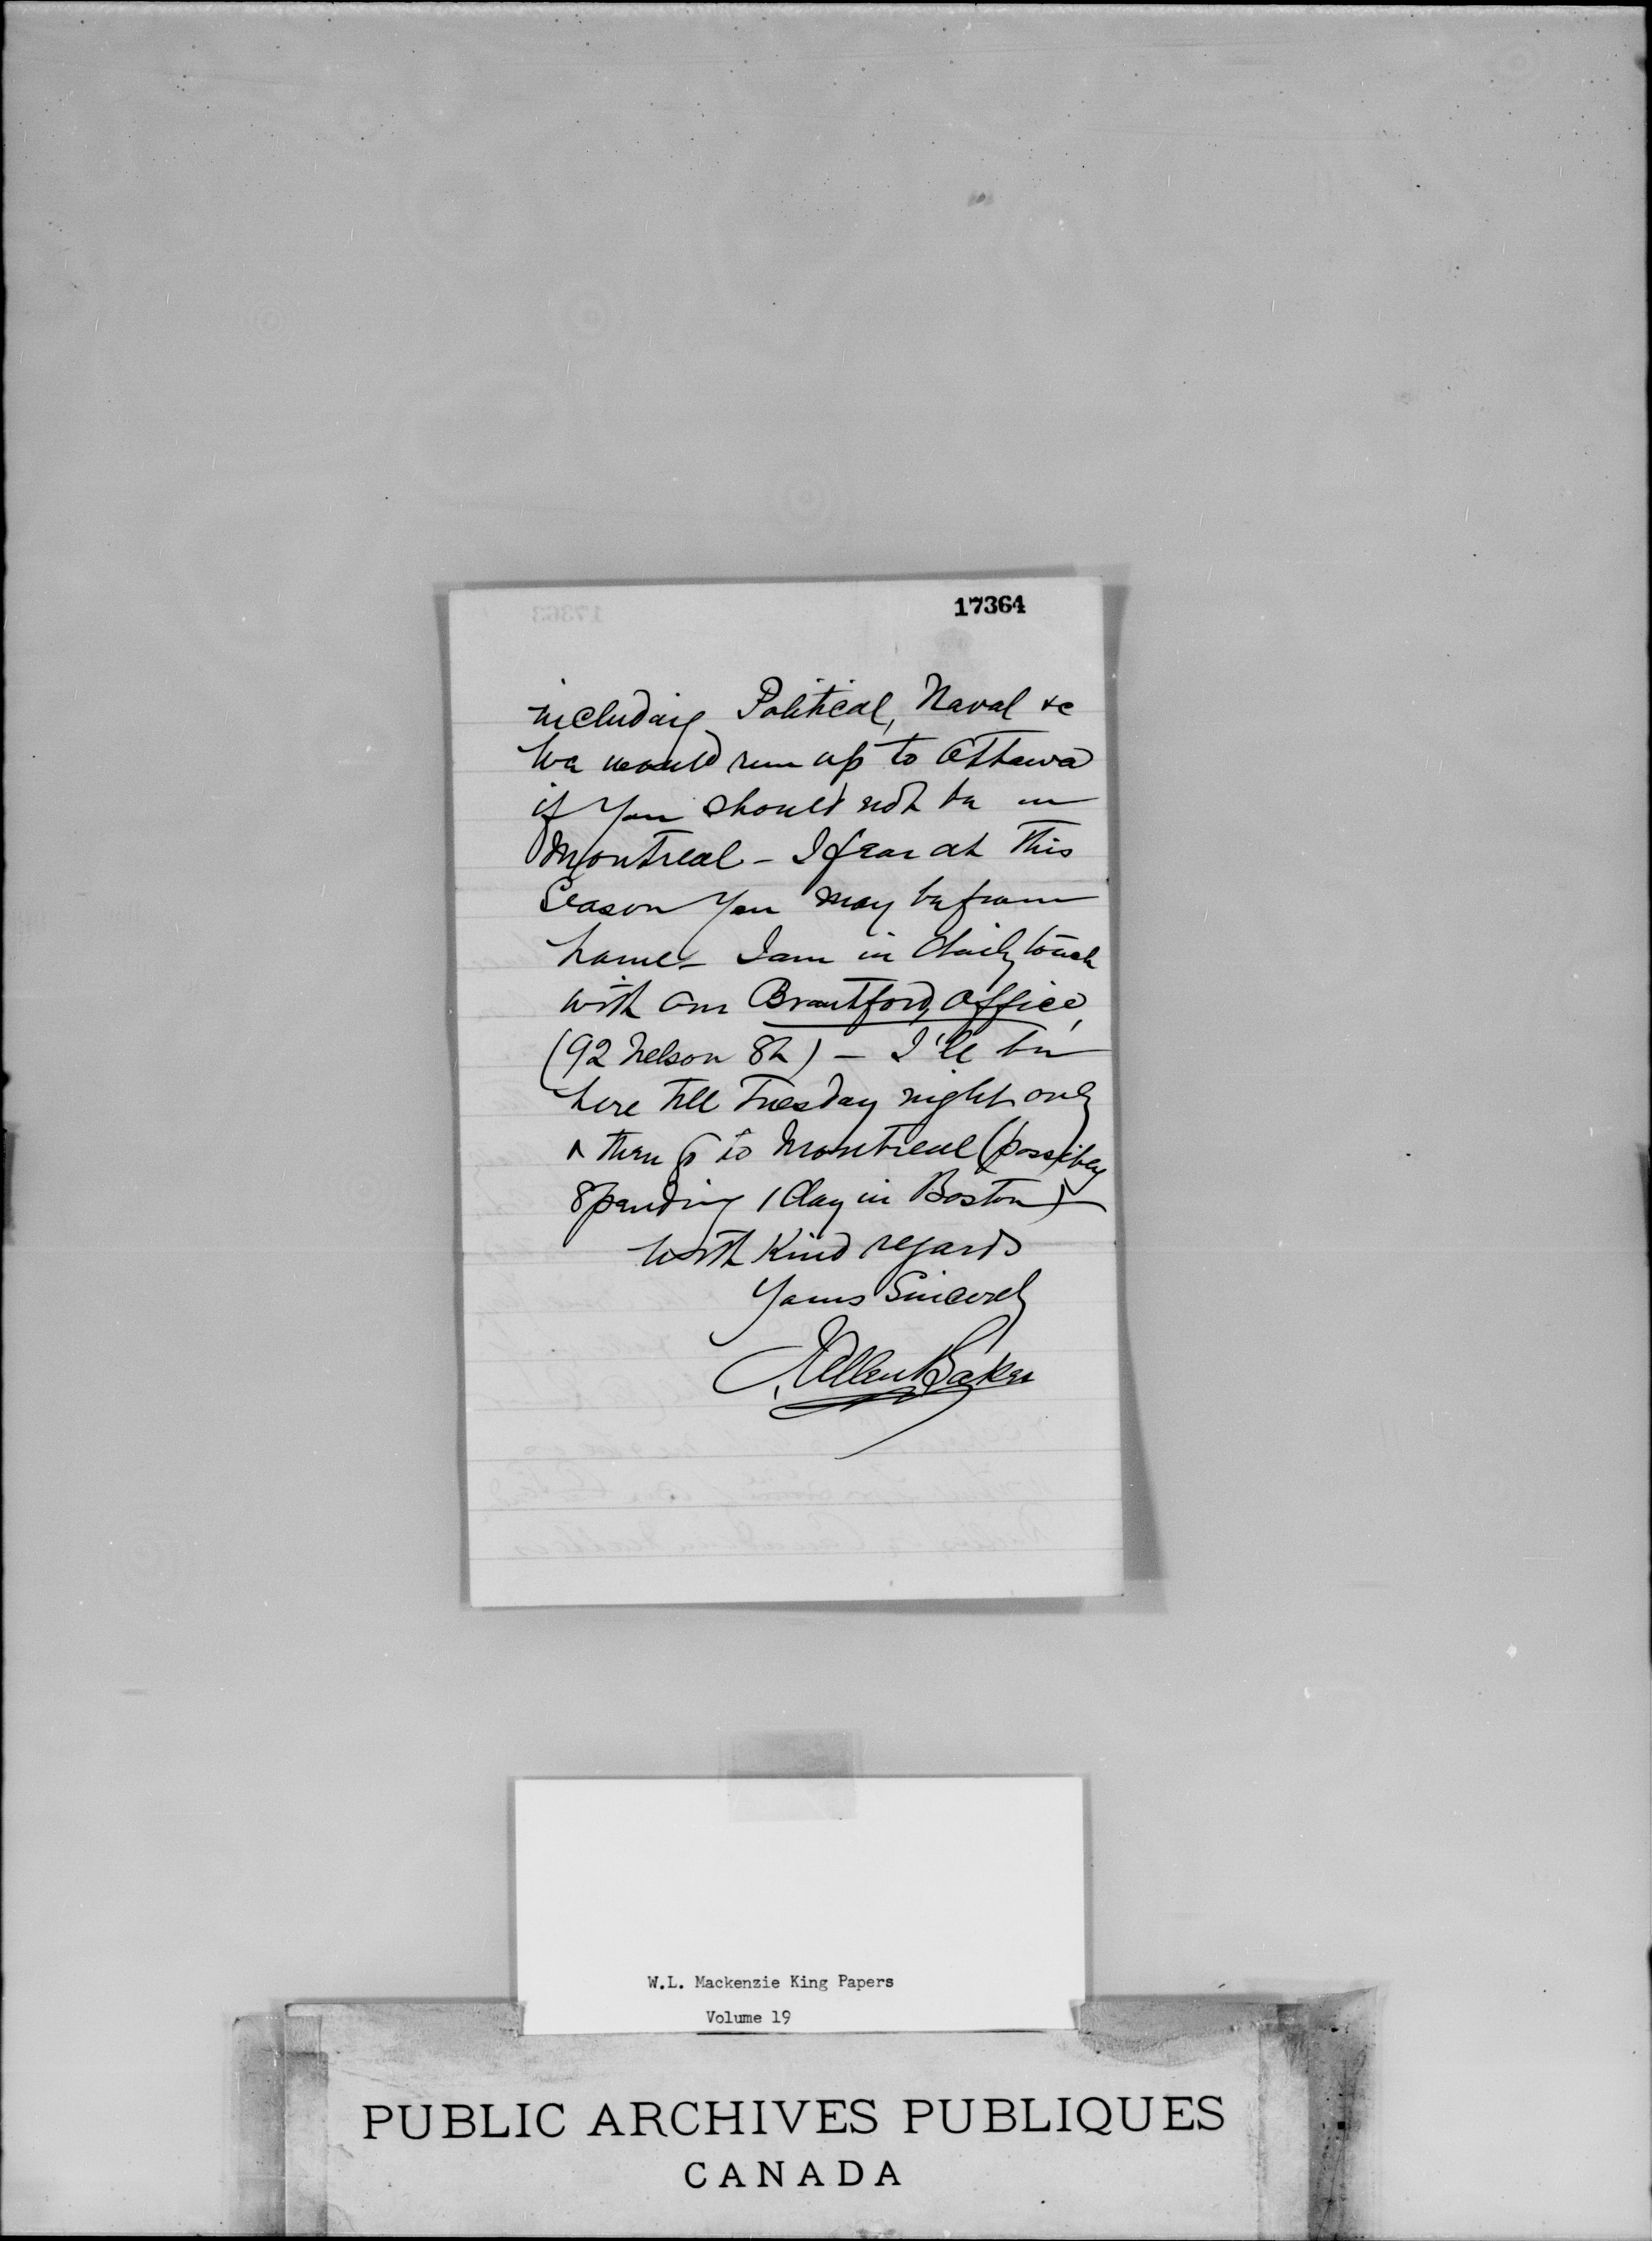 17364
including Political, Naval &c
We would run up to Ottawa
if you should not be in
Montreal - I fear at this
Season you may be from
home - I am in daily touch
with our Brantford, office,
(92 Nelson St) - I'll be
here till Tuesday night only
& then go to Montreal (possibly
Spending 1 day in Boston) -
With Kind regards
Yours Sincerely
J Allen Baker
W.L. Mackenzie King Papers
Volume 19
PUBLIC ARCHIVES PUBLIQUES
CANADA